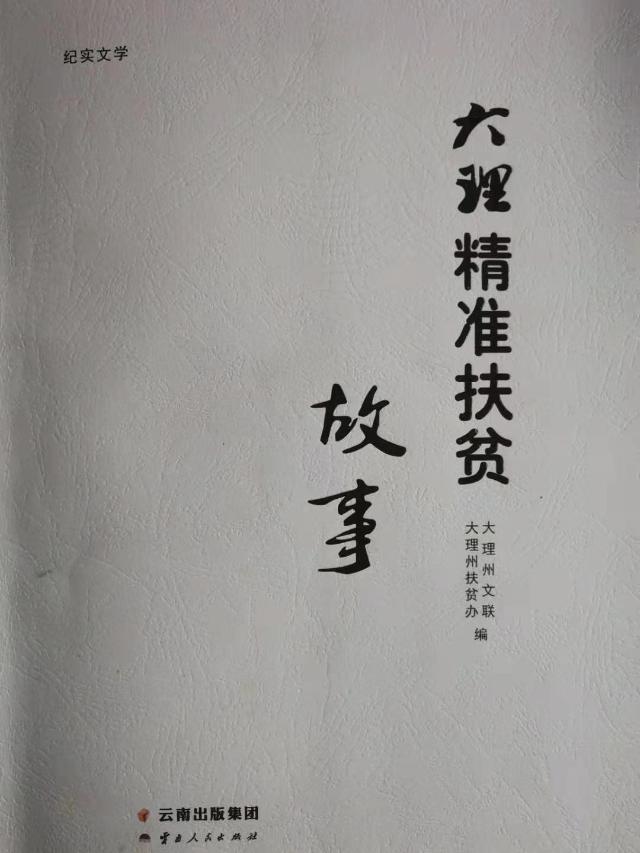 纪实文学
大理精准扶贫
故事
大理州文联
大理州扶贫办
编
云南出版集团
云南人民出版社